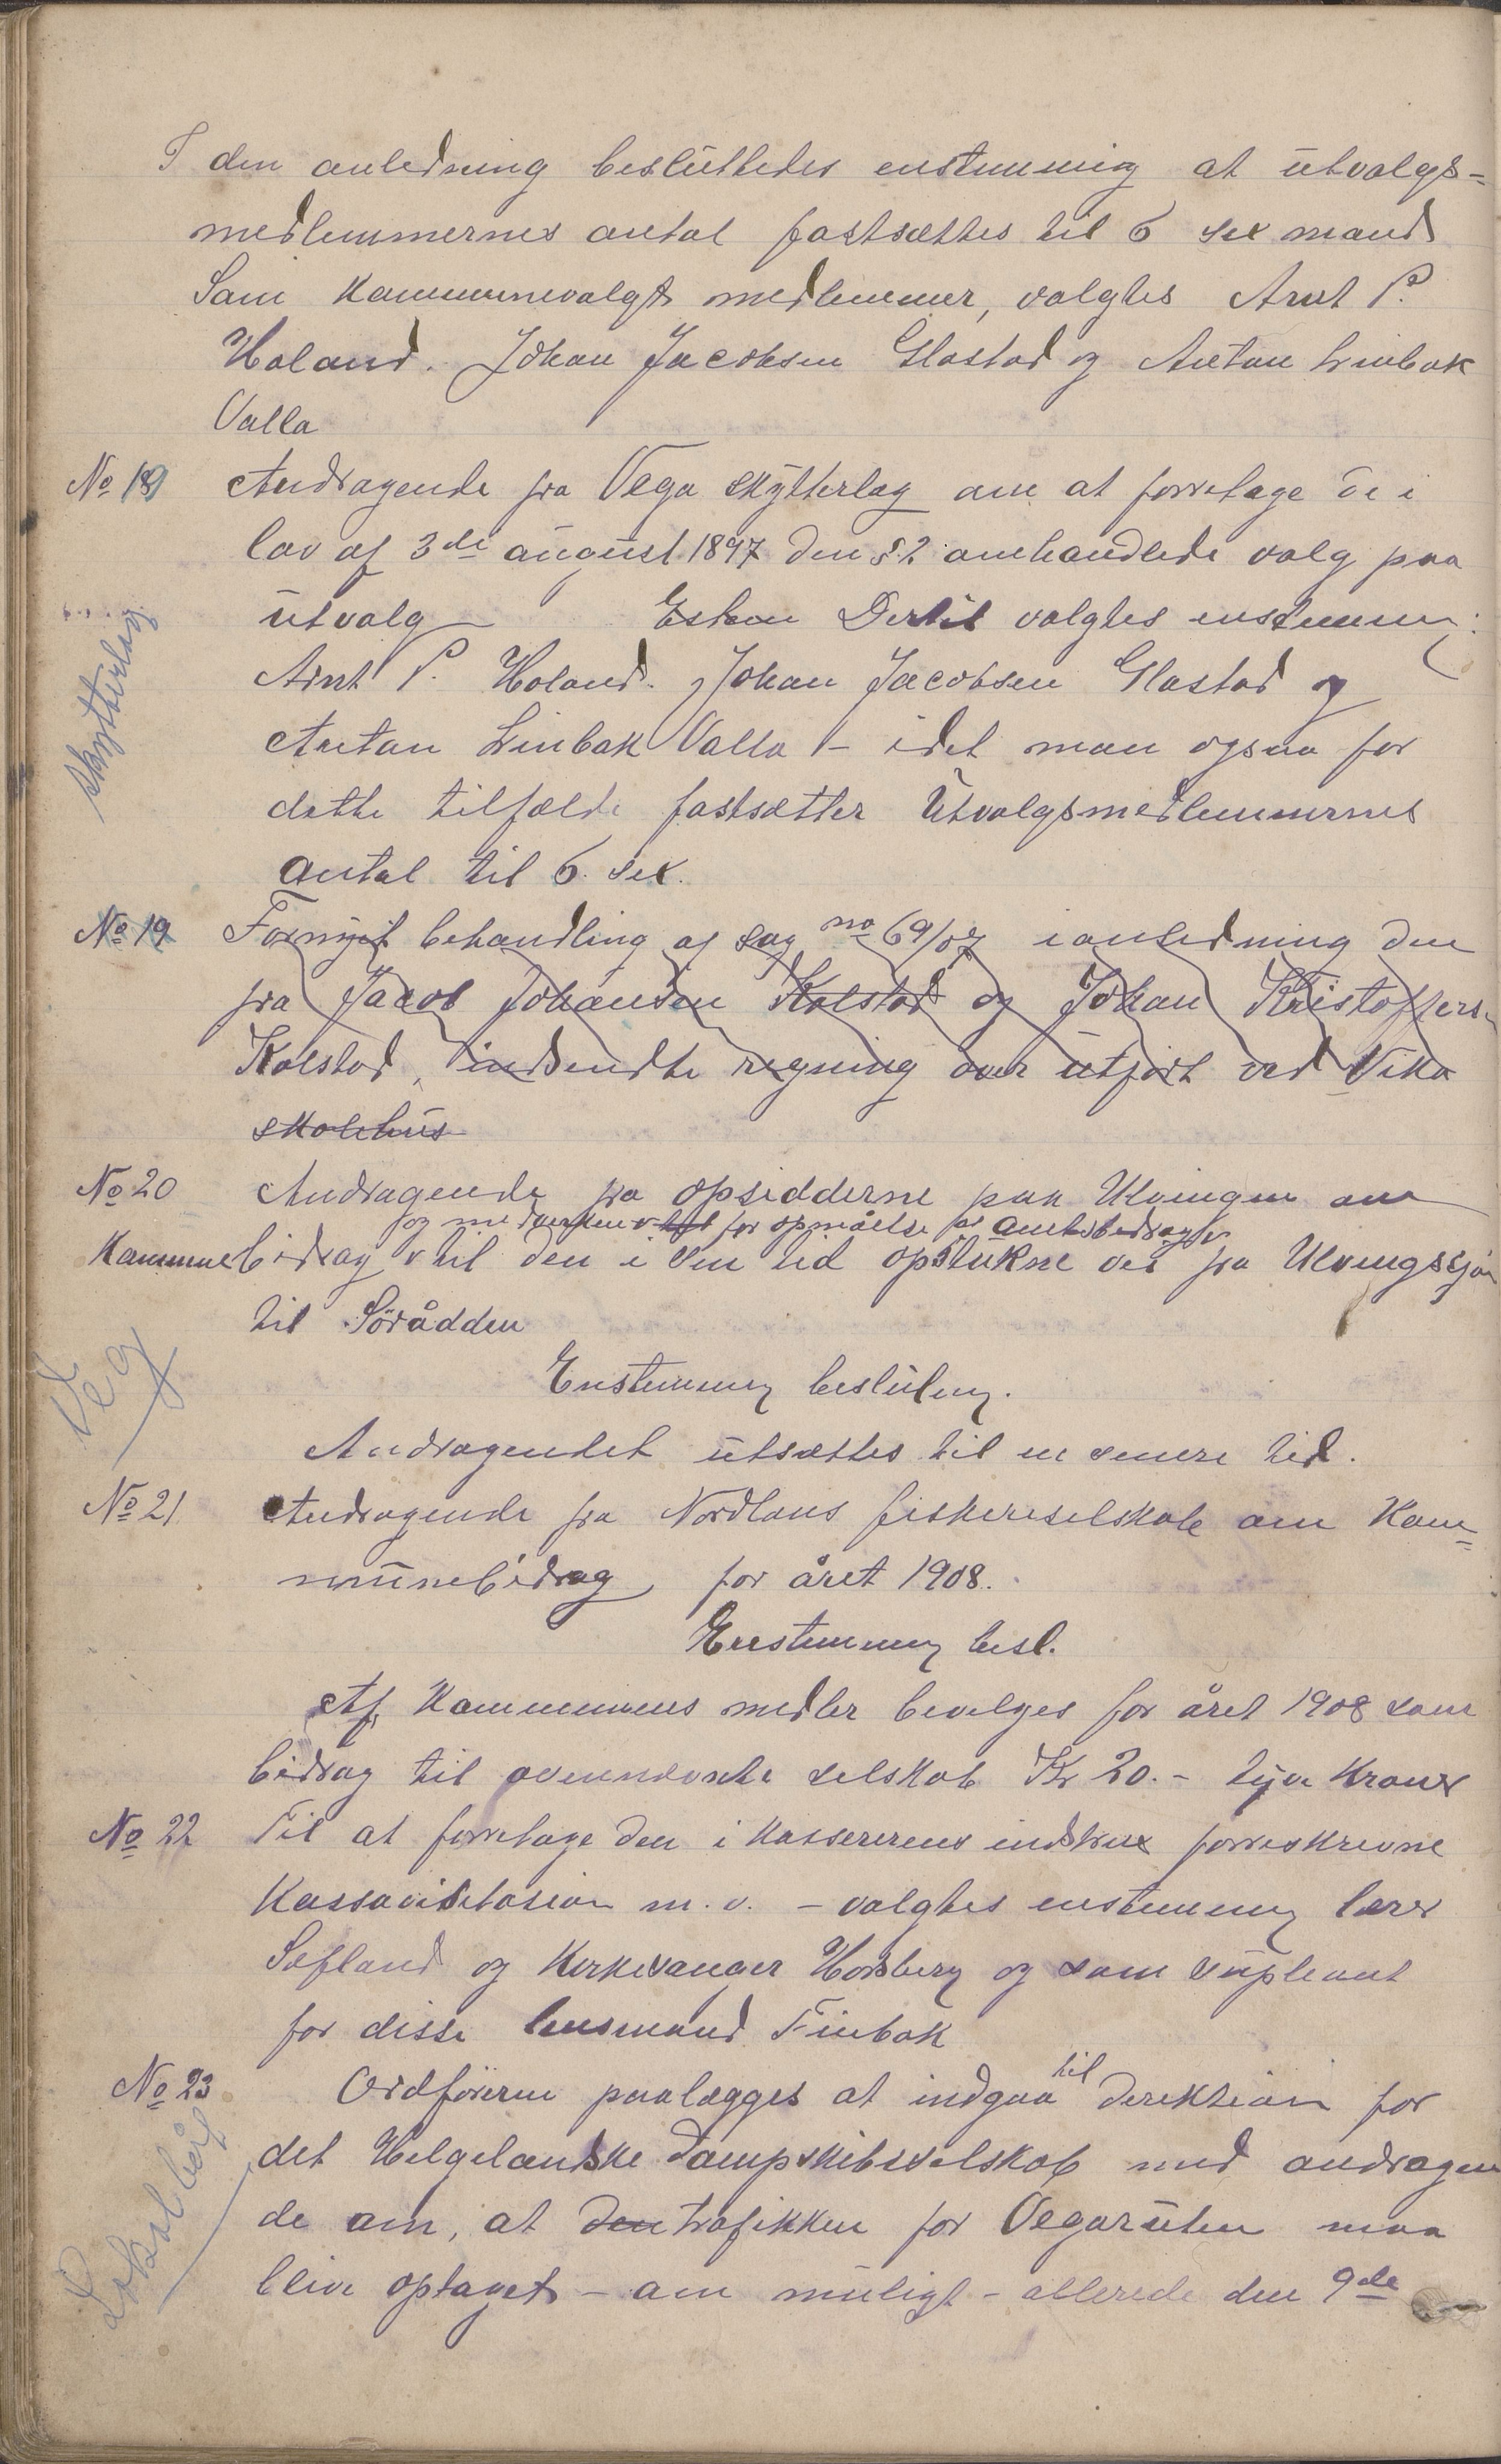 I den anledning besluttedes enstemmig at utvalgs-
medlemmernes antal fastsættes til 6 sex mand
Som kommunevalgte medlemmer, valgtes Arnt P.
Holand. Johan Jacobsen Glastad og Anton Linbak
Valla
No 19 Andragende fra Vega skytterlag om at forretage de i
lov af 3de august 1897 den § 2 omhandlede valg paa
utvalg Dertil valgtes enstemmig:
Skytterlag
Arnt P. Holand. Johan Jacobsen Glastad og
Anton Linbak Valla - idet man ogsaa for
dette tilfælde fastsætter Utvalgsmedlemmernes
antal til 6. sex.
No 19 Fornyet behandling af sag no 69/07 i anledning den
fra Jacob Johansen Kolstad og Johan Kristoffersen
Kolstad, indsendte regning over utført ved Vika
skolehus
No 20 Andragende fra opsidderne paa Ulvingen om
og medvirken for opnåelse af amtsbidrag
Kommunebidrag til den i sin tid opstukne vei fra Ulvingsjøen
til Sörådden
Veg
Enstemmig beslutning.
Andragendet utsættes til en senere tid.
No 21 Andragende fra Nordlans fiskeriselskab om Kom-
munebidrag for året 1908.
Enstemmig besl.
Af Kommunens midler bevilges for året 1908 som
bidrag til ovennevnte selskab Kr 20.- tyve Kroner
No 22 Til at forretage den i Kassererens instrux forreskrevne
Kassavisitasion m.v. - valgtes enstemmig lærer
Sæfland og Kirkesanger Hornsberg og som supleant
for disse lensmand Finbak
No 23 Ordføreren paalægges at indgaa til Direktion for
det Helgelandske Dampskibsselskab med andragen
Lokalbåt
de om, at den trafikken for Vegaruten maa
blive optaget - om muligt - allerede den 9de